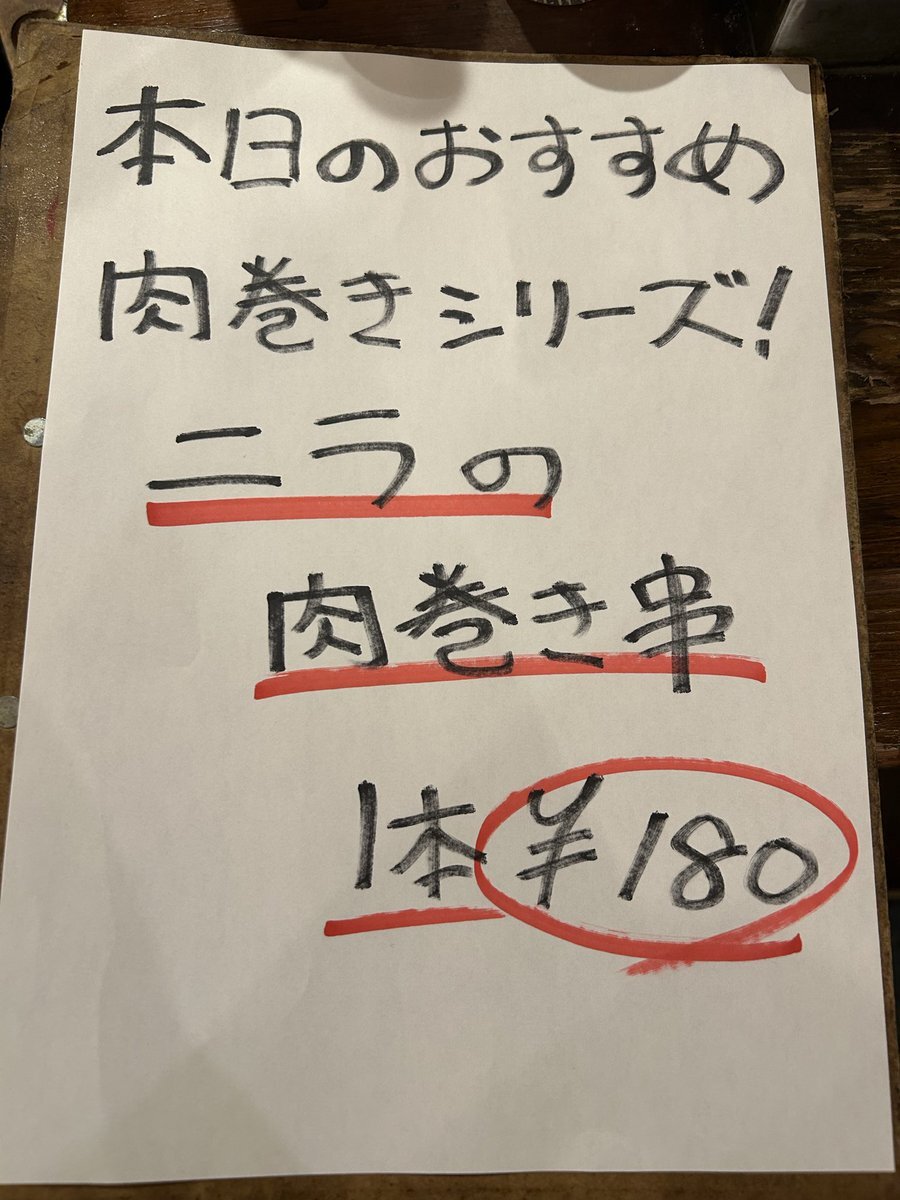 本日のおすすめ
肉巻きシリーズ!
ニラの
肉巻き串
1本 ¥180